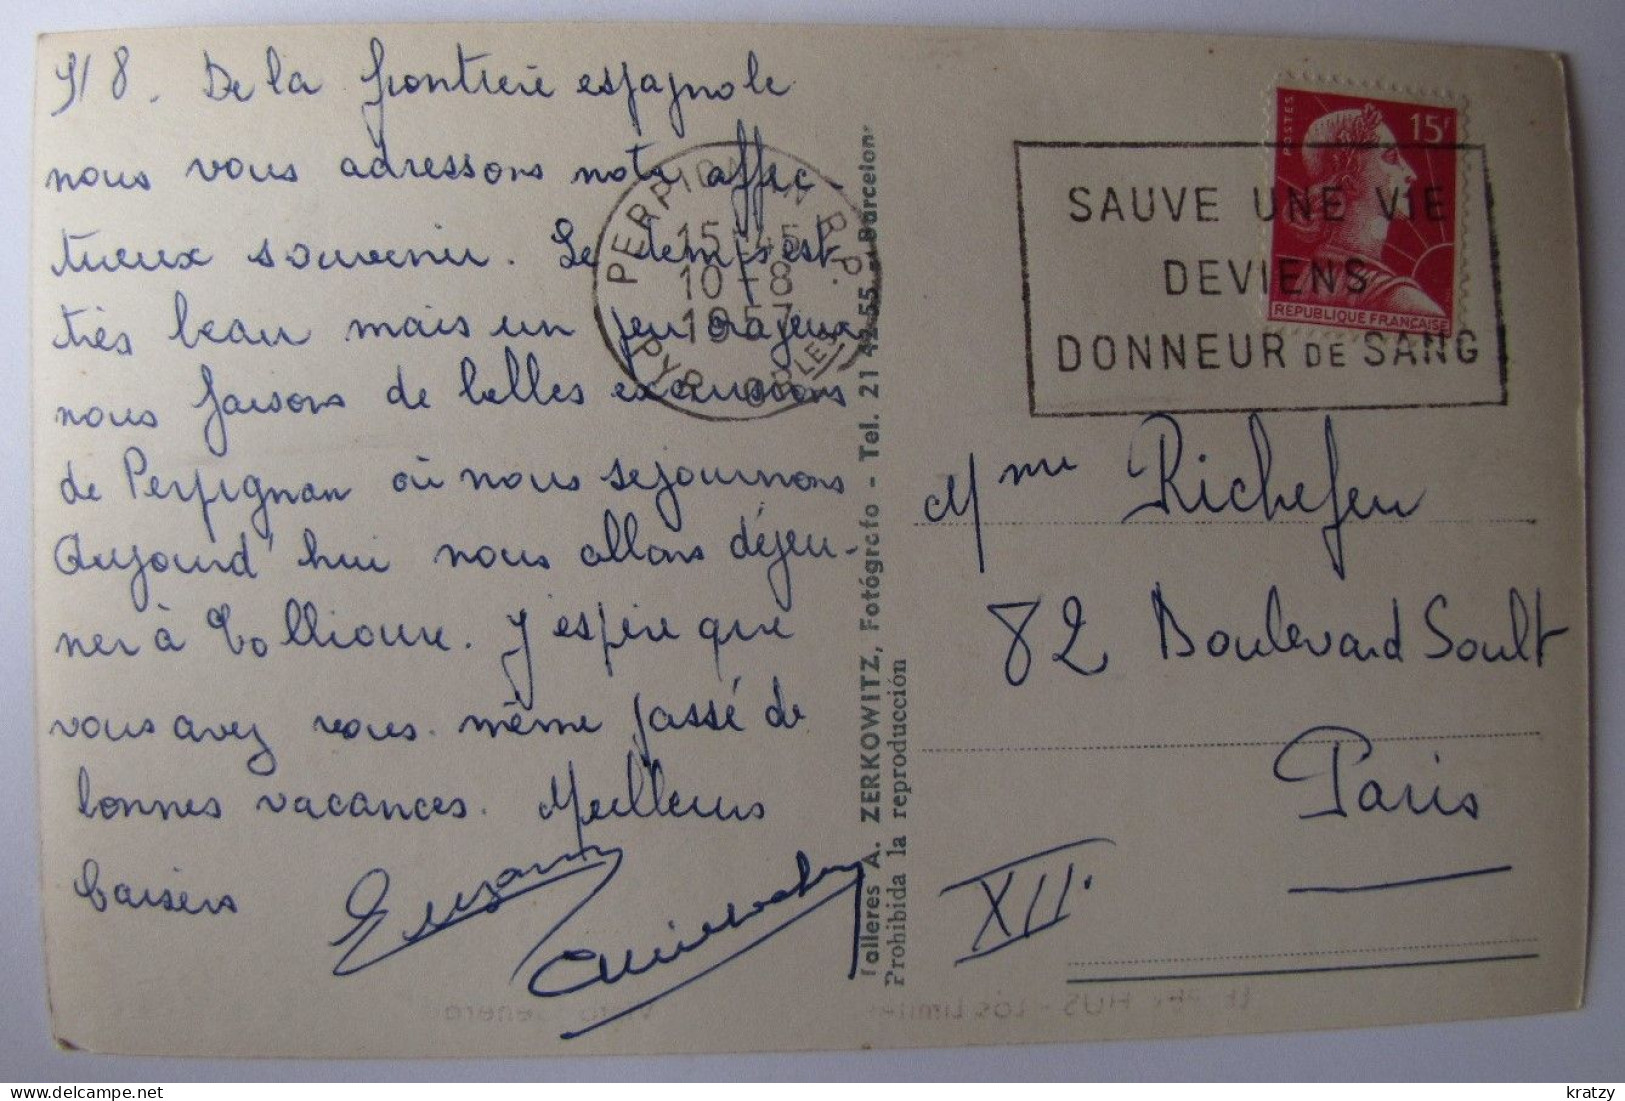 9/8. De la frontière espagnole
nous vous adressons notre affec-
tueux souvenir. Le temps est
très beau mais un peu orageux
nous faisons de belles excursions
de Perpignan où nous séjournons
Aujourd'hui nous allons déjeu-
ner à Collioure. J'espère que
vous avez vous-même passé de
bonnes vacances. Meilleurs
baisers
PERPIGNAN R.P.
15-45
10-8
1957
PYR. ORLES
Talleres A. ZERKOWITZ, Fotógrafo - Tel. 21 42 55 - Barcelona
Prohibida la reproducción
POSTES
15F
REPUBLIQUE FRANÇAISE
SAUVE UNE VIE
DEVIENS
DONNEUR DE SANG
Mme Richefeu
82 Boulevard Soult
Paris
XII.
kratzy